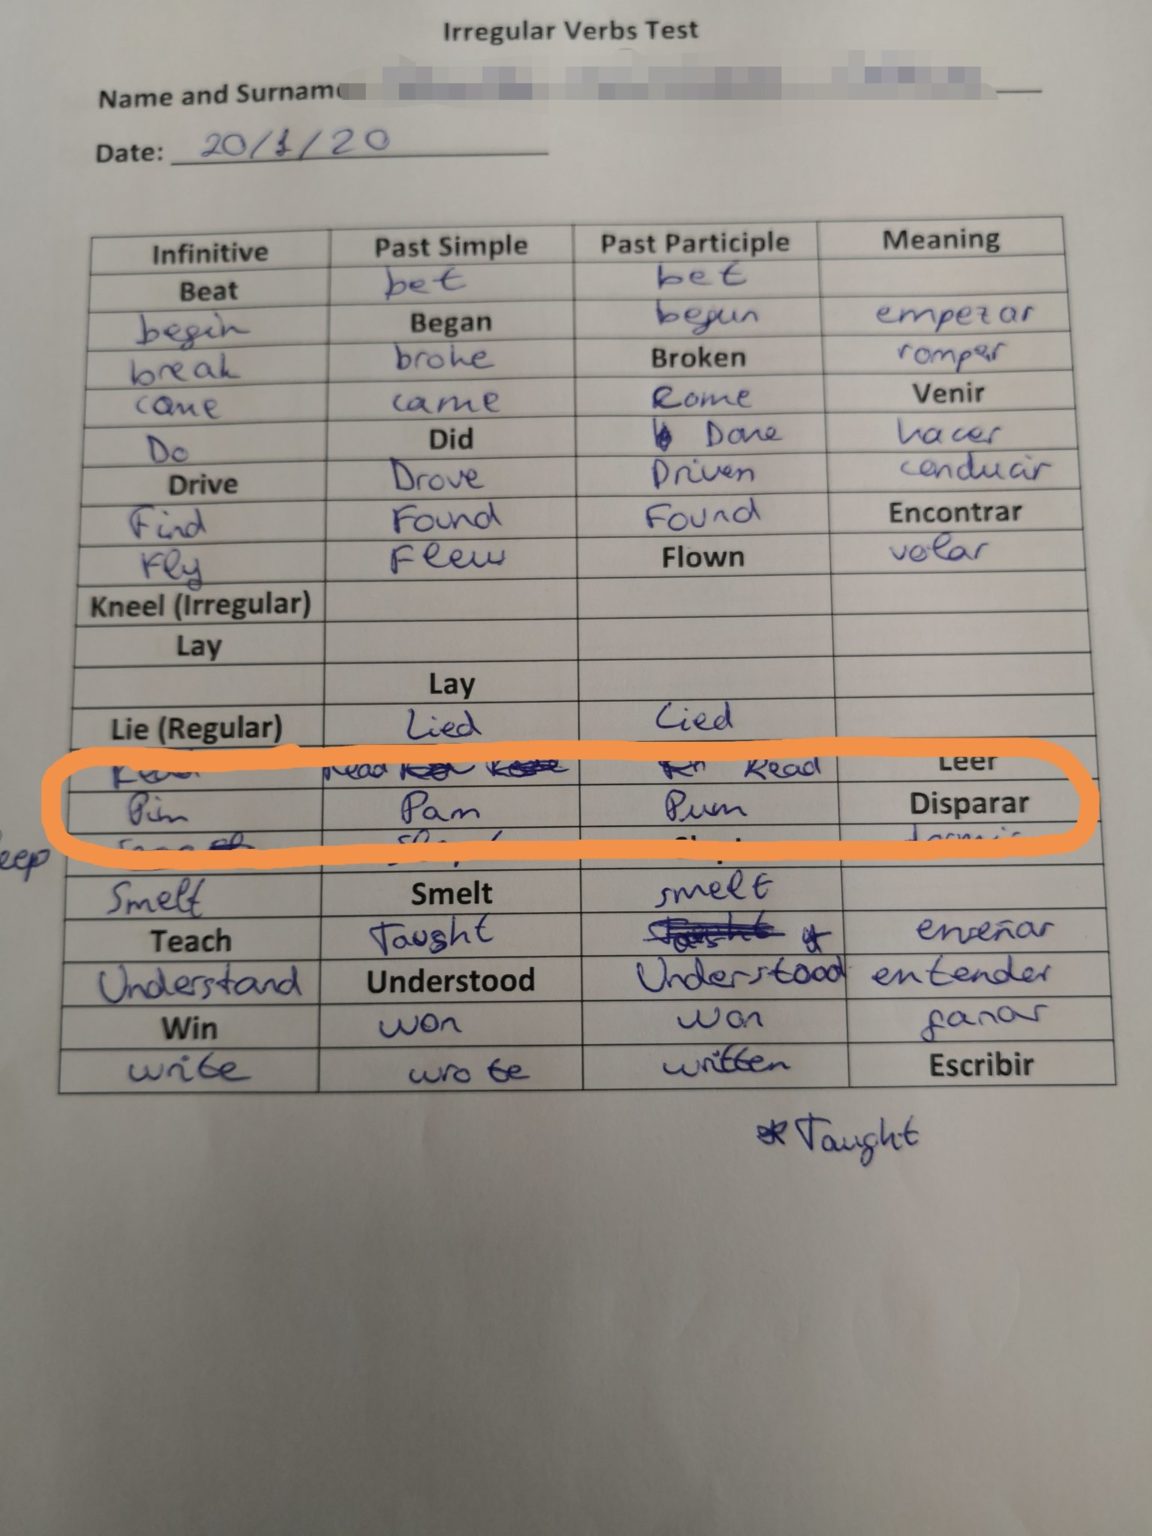 Irregular Verbs Test
Name and Surname
Date: 20/1/20
Infinitive Past Simple Past Participle Meaning
Beat bet bet
begin Began begun empezar
break broke Broken romper
come came come Venir
Do Did Done hacer
Drive Drove Driven conducir
Find Found Found Encontrar
Fly Flew Flown volar
Kneel (Irregular)
Lay
Lay
Lie (Regular) Lied Lied
Read Read Read Leer
Pim Pam Pum Disparar
eep
Smelt Smelt smelt
Teach Taught * enseñar
Understand Understood Understood entender
Win won won ganar
write wrote written Escribir
* Taught